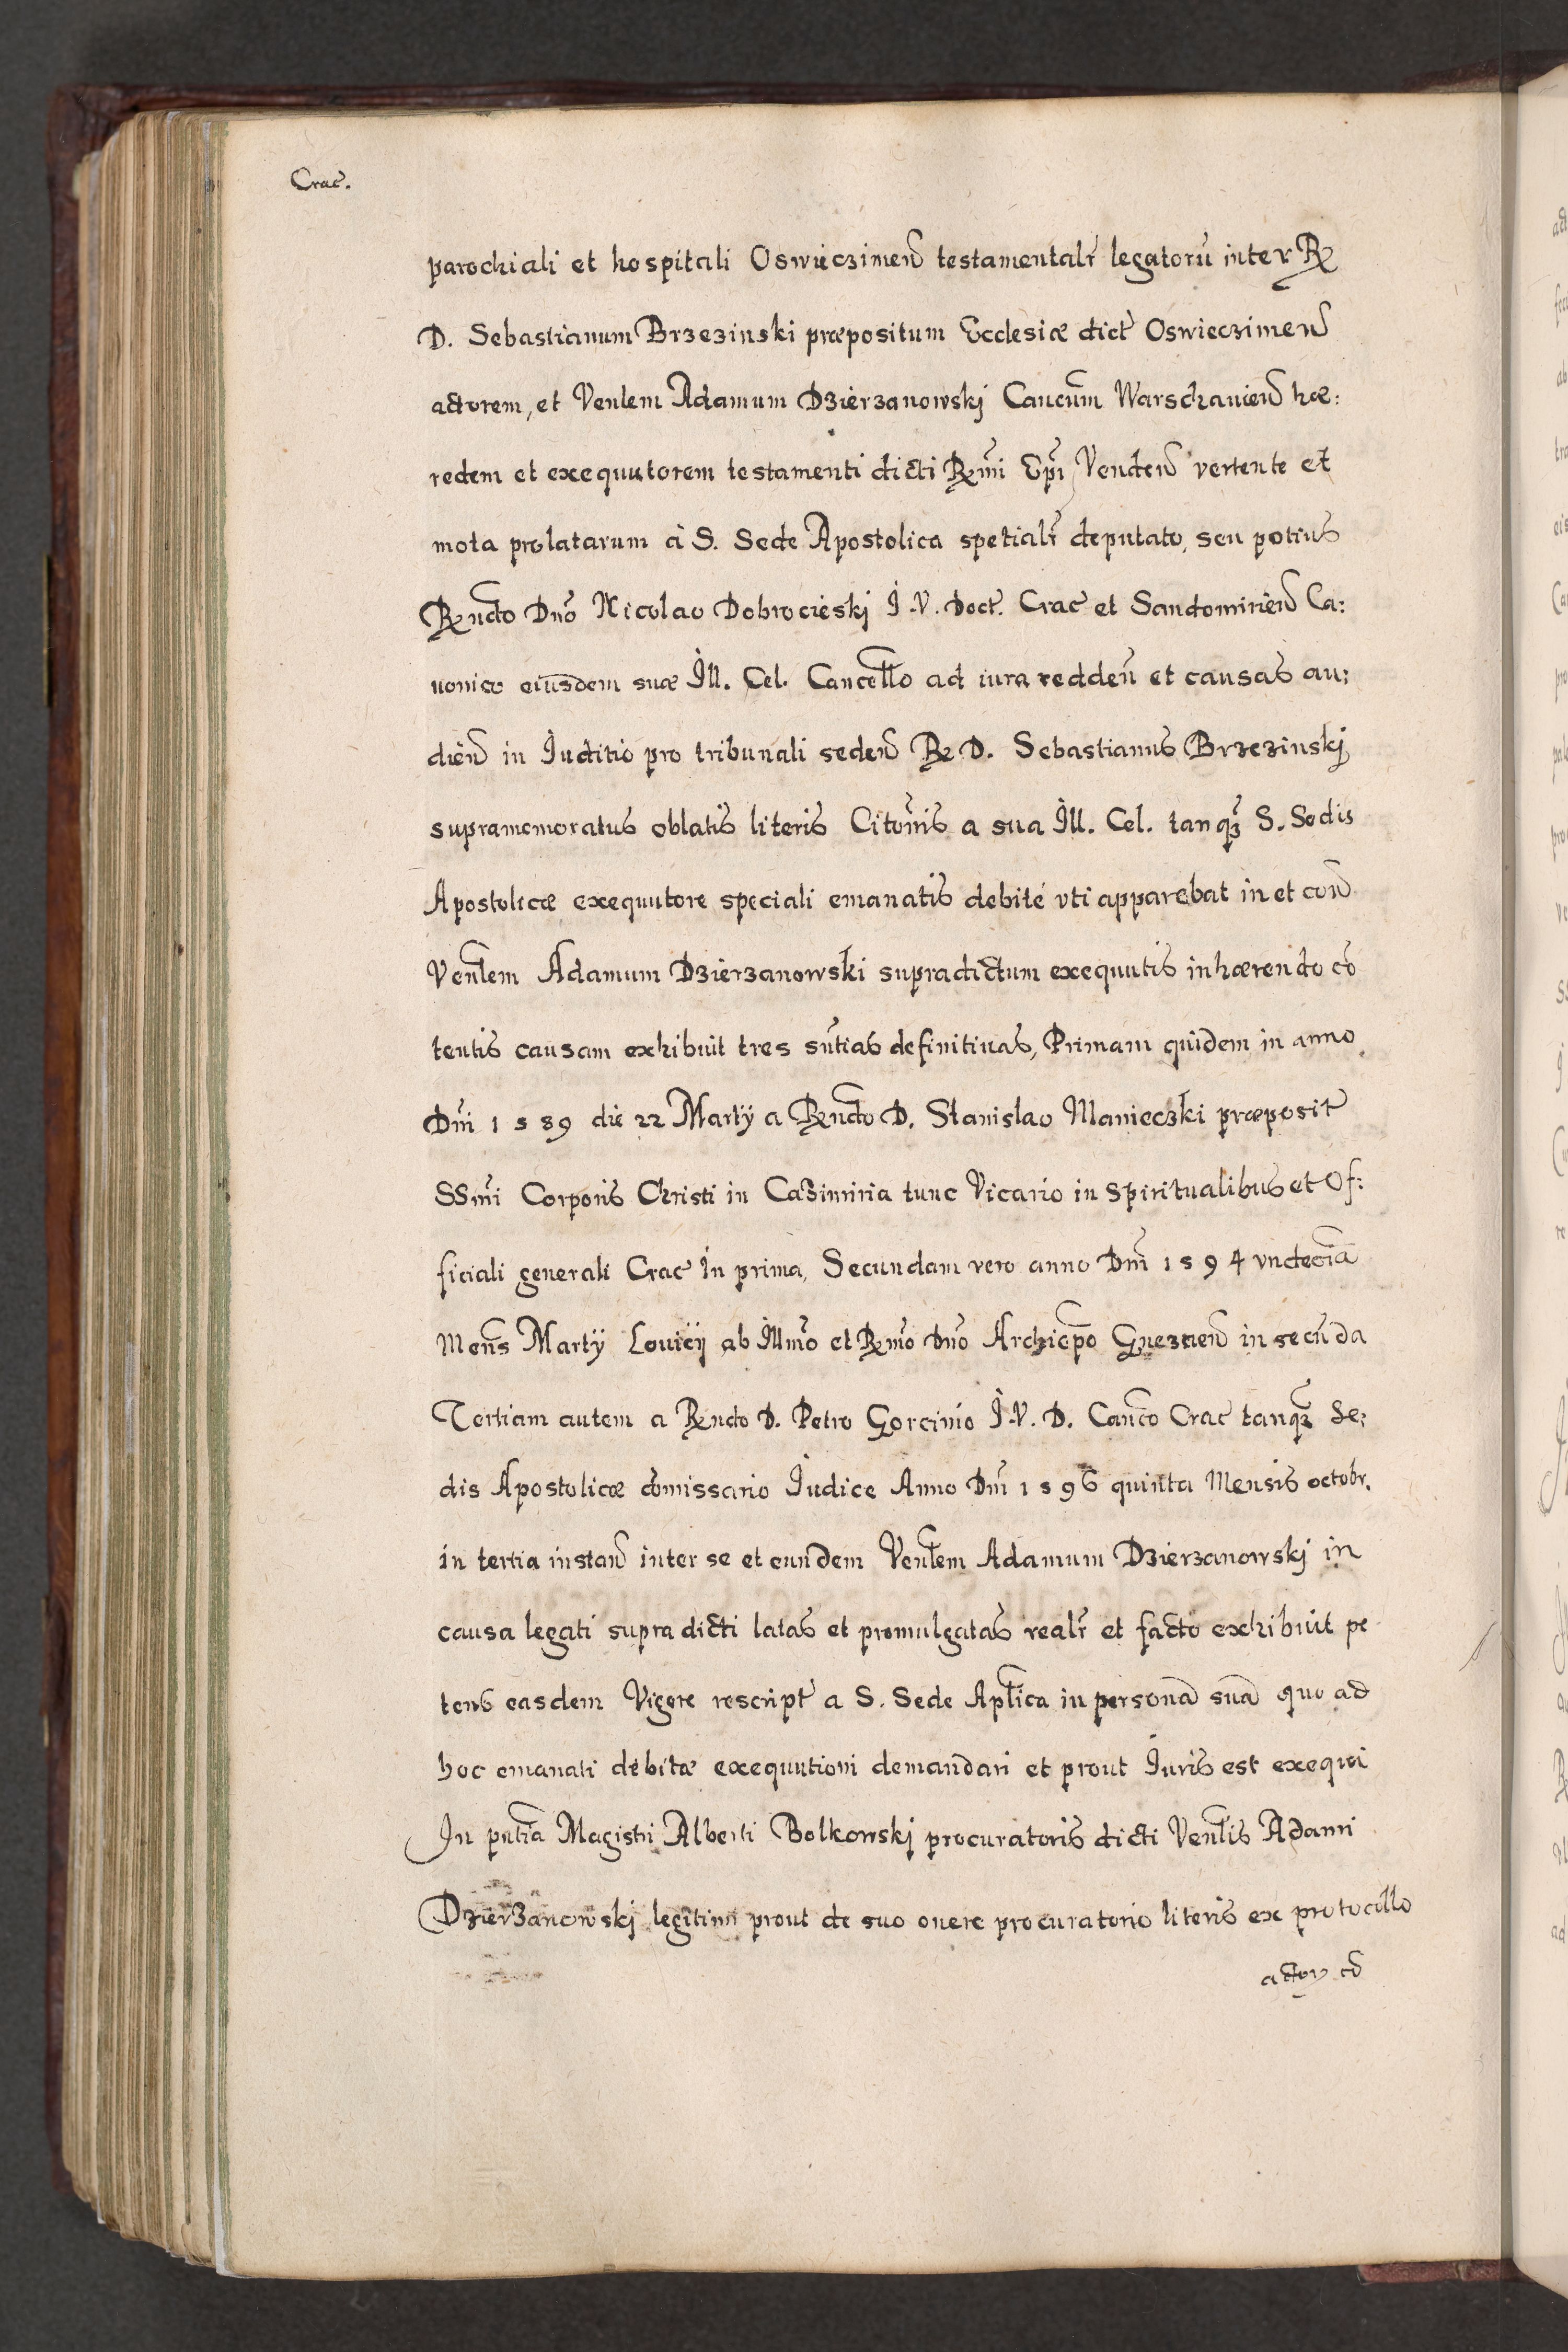 Crac̃.
parochiali et hospitali Oswieczimeñ testamentalr̃ legatorũ inter R
D. Sebastianum Brzezinski præpositum Ecclesiæ dict̃ Oswieczimeñ
actorem, et Venlem Adamum Dzierzanowskj Cancum̃ Warschavieñ hæ:
redem et exequutorem testamenti dicti Rm̃i Epĩ Vendeñ vertente et
mota prolatarum à S. Sede Apostolica spetialr̃ deputato, seu potius
Rndo Dño Nicolao Dobrocieskj I.V. Doct. Crac̃ et Sandomirieñ Ca:
nonico eiusdem suæ Ill. Cel. Cancello ad iura reddeñ et causas au:
dieñ in Iuditio pro tribunali sedeñ R D. Sebastianus Brzezinskj
supramemoratus oblatis literis Citoñis a sua Ill. Cel. tanqz S. Sedis
Apostolicæ exequutore speciali emanatis debité vti apparebat in et coñ
Venlem Adamum Dzierzanowski supradictum exequutis inhærendo cõ
tentis causam exhibuit tres sñtias definitiuas, Primam quidem in anno
Dñi 1589 die 22 Martÿ a Rndo D. Stanislao Manieczki præposit̃
SSm̃i Corporis Christi in Cazimiria tunc Vicario in Spiritualibus et Of:
ficiali generali Crac̃ in prima, Secundam vero anno Dñi 1594 vndecim̃a
Meñs Martÿ Louicÿ ab Illm̃o et Rm̃o Dño Archiepõ Gnezneñ in secũda
Tertiam autem a Rndo D. Petro Gorcinio I.V.D. Canco Crac̃ tanqz Se:
dis Apostolicæ cõmissario Iudice Anno Dñi 1596 quinta Mensis octobr.
in tertia instañ inter se et eundem Venlem Adamum Dzierzanowskj in
causa legati supra dicti latas et promulgatas realr̃ et facto exhibuit pe
tens easdem Vigore rescript̃ a S. Sede Aplica in personã suã quo ad
hoc emanati debitæ exequutioni demandari et prout Iuris est exequi
In pñtia Magistri Alberti Bolkowskj procuratoris dicti Venlis Adami
Dzierzanowskj legitimi prout de suo onere procuratorio literis ex protocollo
actorũ cõ